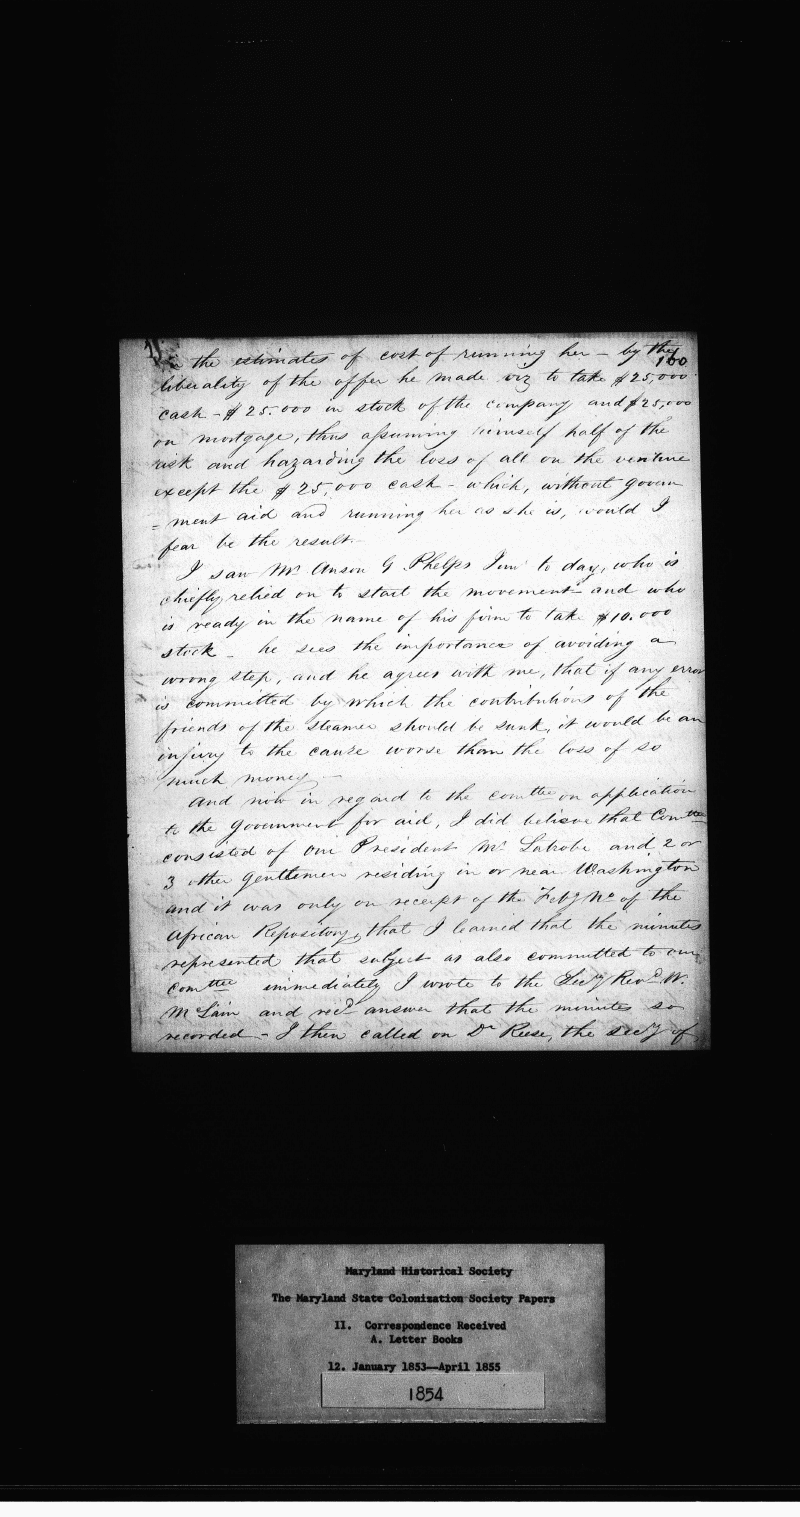 the estimates of cost of running her – by the
160
liberality of the offer he made viz to take $25,000
cash – $25.000 in stock of the company and $25,000
on mortgage, thus assuming himself half of the
risk and hazarding the loss of all on the venture
except the $25,000 cash – which, without govern
= ment aid and running her as she is, would I
fear be the result. –
I saw Mr Anson G Phelps Junr to day, who is
chiefly relied on to start the movement – and who
is ready in the name of his firm to take $10.000
stock – he sees the importance of avoiding a
wrong step, and he agrees with me, that if any error
is committed by which the contributions of the
friends of the steamer should be sunk, it would be an
injury to the cause worse than the loss of so
much money. –
And now in regard to the comttee on application
to the Government for aid, I did believe that Comttee
consisted of our President Mr Latrobe and 2 or
3 other gentlemen residing in or near Washington
and it was only on receipt of the Feby No of the
African Repository, that I learned that the minutes
represented that subject as also committed to our
comttee immediately I wrote to the Secy Revd W.
McLain and recd answer that the minutes so
recorded – I then called on Dr Reese, the secy of
Maryland Historical Society
The Maryland State Colonization Society Papers
II. Correspondence Received
A. Letter Books
12. January 1853--April 1855
1854